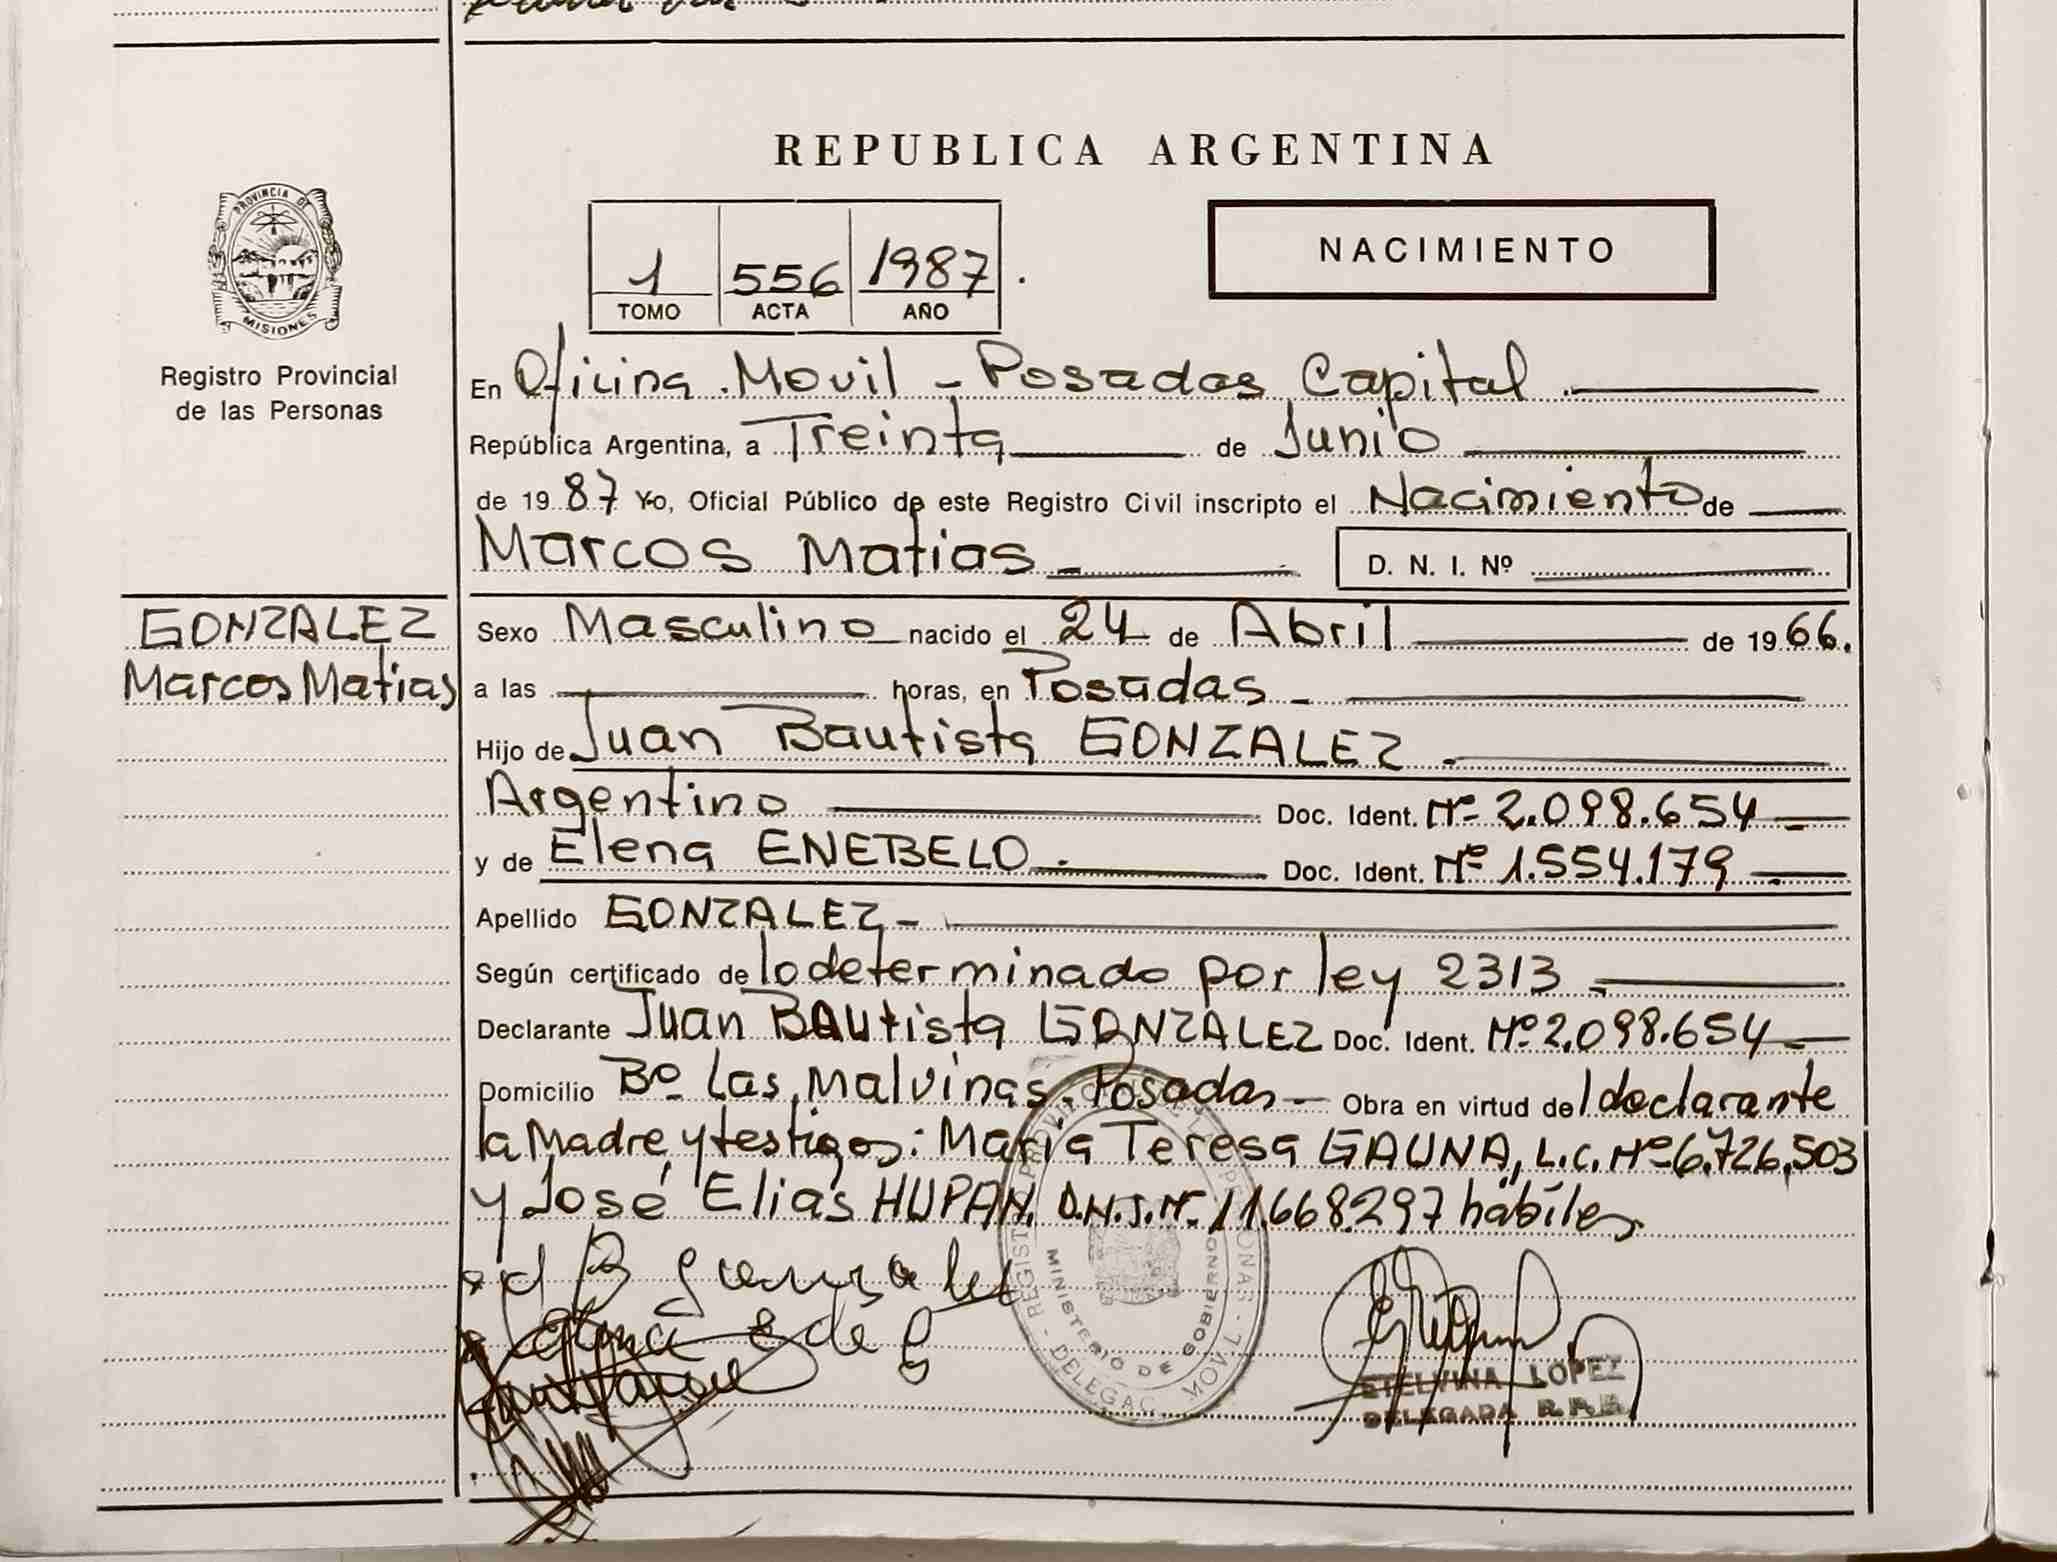 REPUBLICA ARGENTINA
PROVINCIA DE
MISIONES
Registro Provincial
de las Personas
1 556 1987
TOMO ACTA AÑO
NACIMIENTO
En Oficina Movil - Posadas Capital
República Argentina, a Treinta de Junio
de 1987 Yo, Oficial Público de este Registro Civil inscripto el Nacimiento de
Marcos Matias D. N. I. Nº
GONZALEZ
Marcos Matias
Sexo Masculino nacido el 24 de Abril de 1966.
a las horas, en Posadas
Hijo de Juan Bautista GONZALEZ
Argentino Doc. Ident. Nº 2.098.654
y de Elena ENEBELO Doc. Ident. Nº 1.554.179
Apellido GONZALEZ
Según certificado de lo determinado por ley 2313
Declarante Juan Bautista GONZALEZ Doc. Ident. Nº 2.098.654
Domicilio Bº Las Malvinas. Posadas - Obra en virtud del declarante
la Madre y testigos: Maria Teresa GAUNA, L.C. Nº 6.726.503
y José Elias HUPAN. D.N.I. Nº 11.668.297 hábiles
MINISTERIO DE GOBIERNO
ETELVINA LOPEZ
DELEGADA R.P.P.